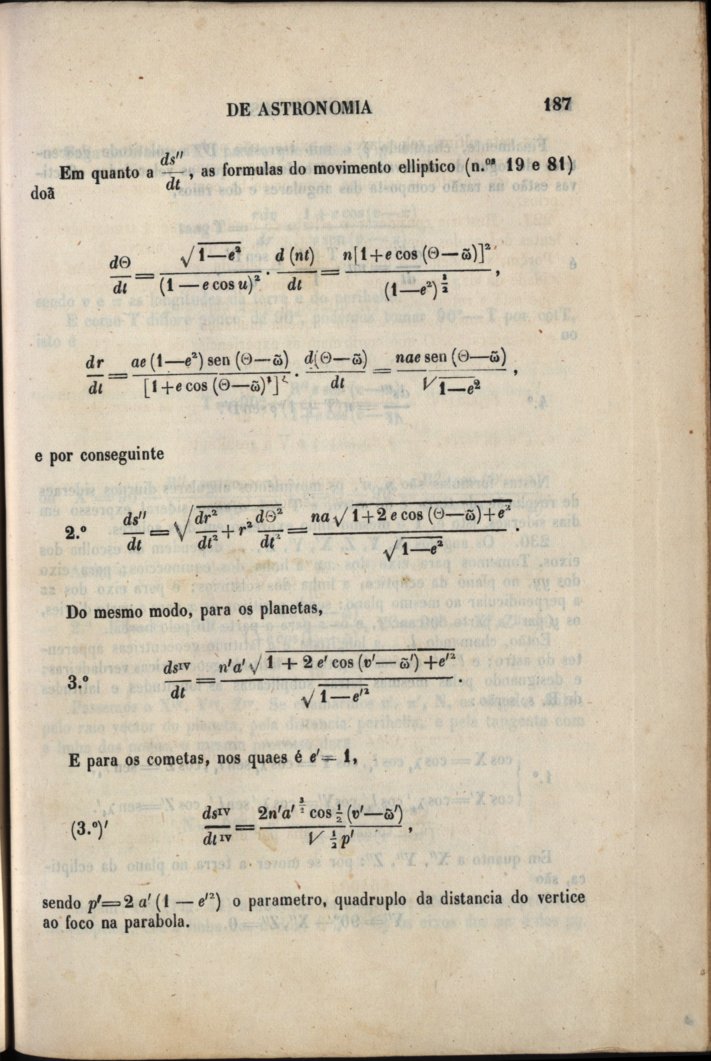 DE ASTRONOMIA 187
Em quanto a ds''/dt, as formulas do movimento elliptico (n.ºˢ 19 e 81)
doã
dΘ/dt = √(1—e²)/(1 — e cos u)² · d (nt)/dt = n[1+e cos (Θ—ω̃)]²/(1—e²)^(3/2),
dr/dt = ae (1—e²) sen (Θ—ω̃)/[1+e cos (Θ—ω̃)]² · d(Θ—ω̃)/dt = nae sen (Θ—ω̃)/√(1—e²),
e por conseguinte
2.º ds''/dt = √(dr²/dt² + r² dΘ²/dt²) = na √(1+2 e cos (Θ—ω̃)+e²)/√(1—e²).
Do mesmo modo, para os planetas,
3.º dsᴵⱽ/dt = n'a' √(1 + 2 e' cos (v'— ω̃') +e'²)/√(1—e'²).
E para os cometas, nos quaes é e'= 1,
(3.º)' dsᴵⱽ/dtᴵⱽ = 2n'a'^(3/2) cos ½ (v'—ω̃')/√(½ p'),
sendo p'=2 a' (1 — e'²) o parametro, quadruplo da distancia do vertice
ao foco na parabola.